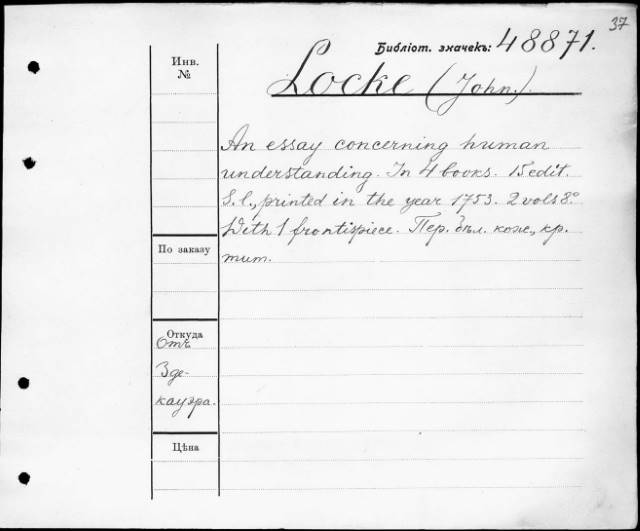 37
Библіот. значекъ: 48871.
Инв.
№
Locke (John.)
An essay concerning human
understanding. In 4 books. 15 edit.
S. l., printed in the year 1753. 2 vols 8°
With 1 frontispiece. Пер. бѣл. кож., кр.
тит.
По заказу
Откуда
Отъ
Зде-
кауэра.
Цѣна